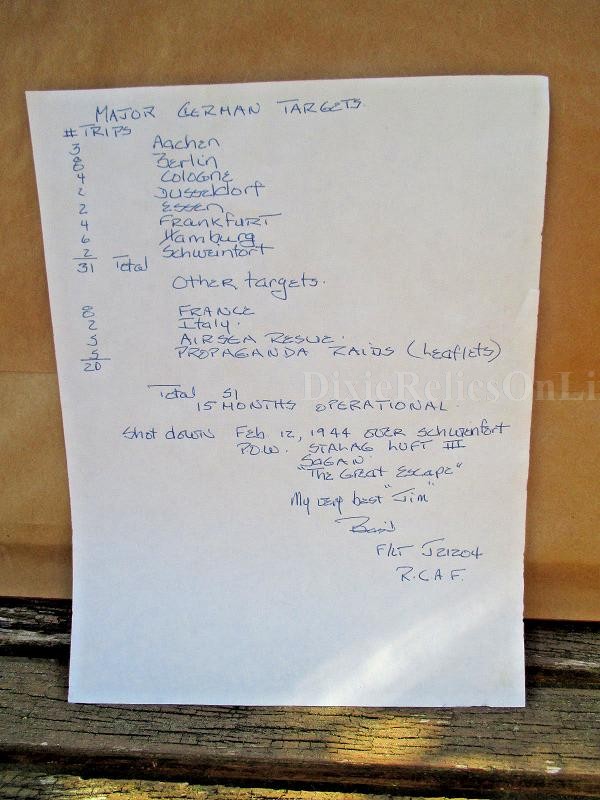 MAJOR GERMAN TARGETS.
# TRIPS
3 Aachen
8 Berlin
4 COLOGNE
2 DUSSELDORF
2 ESSEN
4 FRANKFURT
6 Hamburg
2 Schweinfort
31 Total
Other targets.
8 FRANCE
2 Italy.
5 AIRSEA RESUE.
5 PROPAGANDA RAIDS (Leaflets)
20
Total 51
DixieRelicsOnLi
15 MONTHS OPERATIONAL.
Shot down Feb. 12, 1944 over Schweinfort
P.O.W. STALAG LUFT III
SAGAN.
"The Great Escape"
My very best "Jim"
F/LT J21204
R.C.A.F.